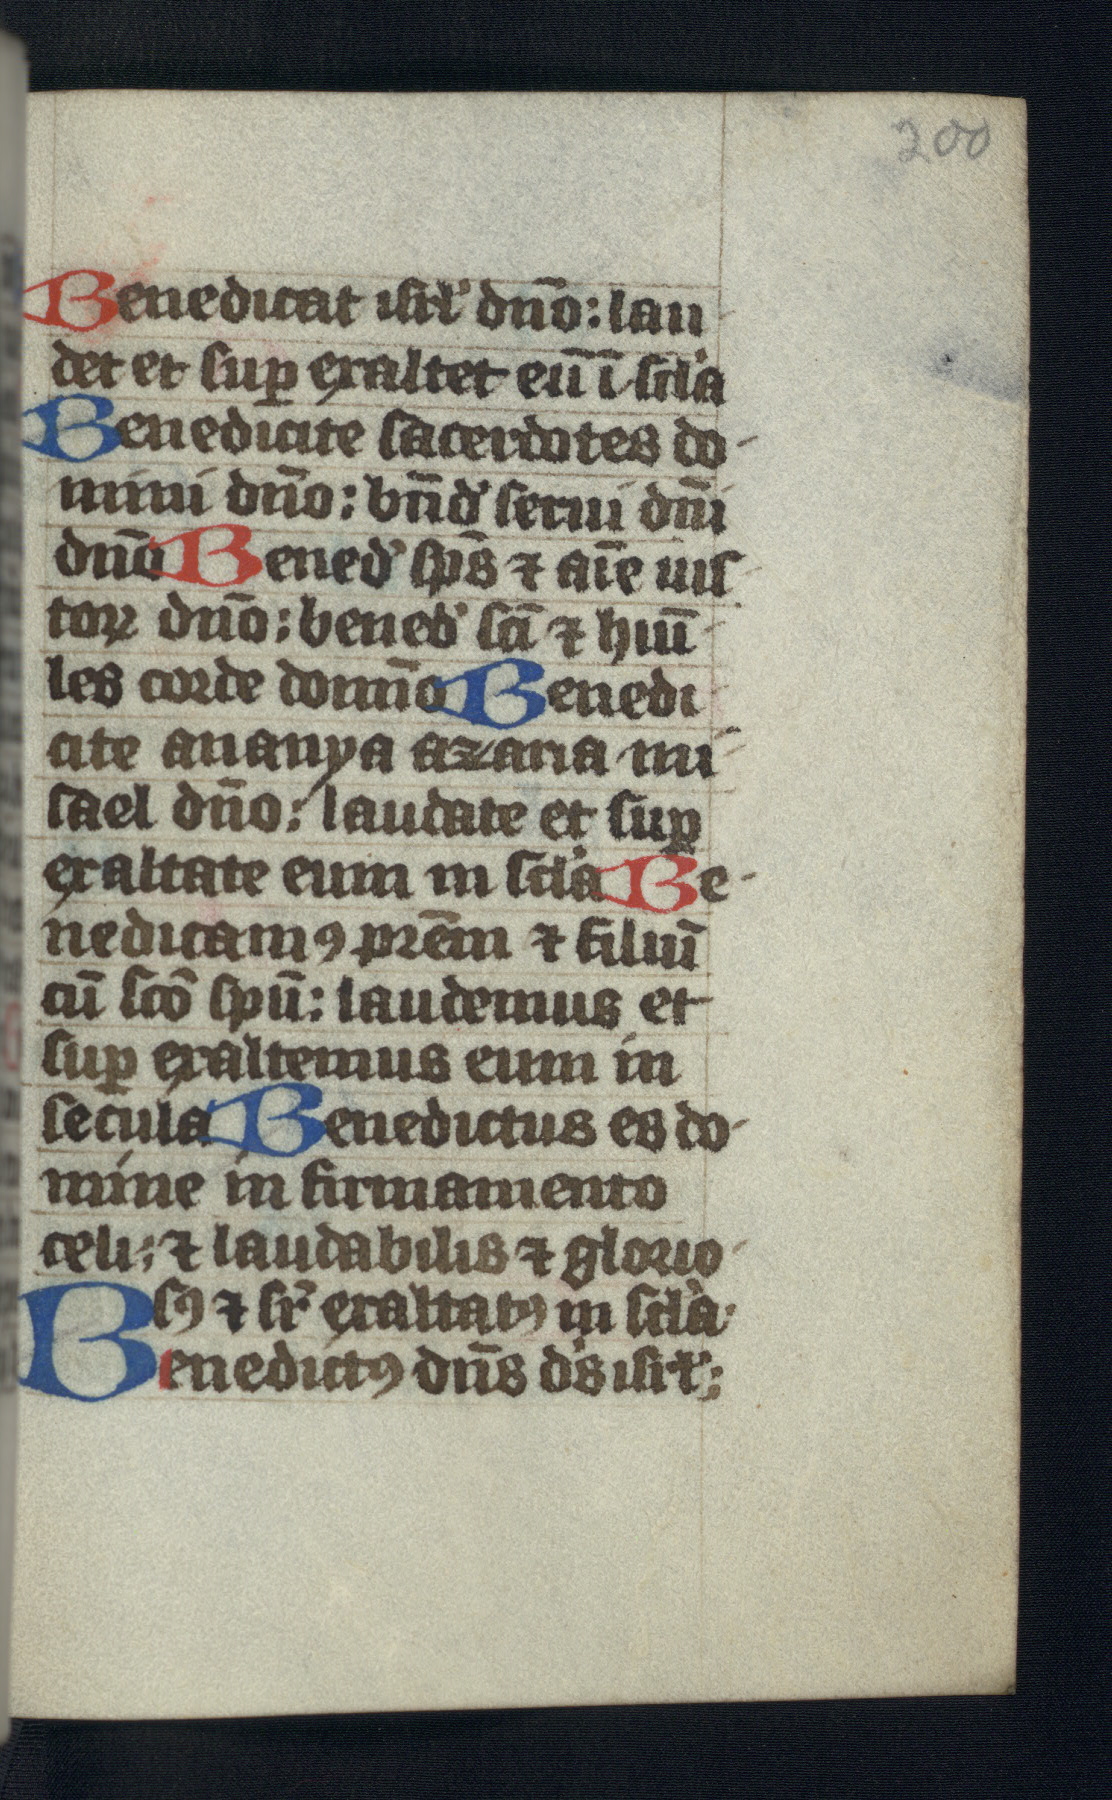 200
Benedicat isrl' dn̄o: lau
det et sup̱ exaltet eū ī scl'a
Benedicite sacerdotes do-
mini dn̄o: bn̄d' serui dn̄i
dn̄o Bened' sp̄s ⁊ aīe ius-
toꝝ dn̄o: bened' scī ⁊ hūi-
les corde domīo Benedi
cite ananya azaria mi-
sael dn̄o: laudate et suꝑ
exaltate eum in scl'a Be-
nedicamꝯ prēm ⁊ filiū
cū scō spū: laudemus et
suꝑ exaltemus eum in
secula Benedictus es do-
mine in firmamento
celi: ⁊ laudabilis ⁊ glorio-
sꝯ ⁊ sr̄ exaltatꝯ in scl'a:
Benedictꝯ dn̄s d's isrl':